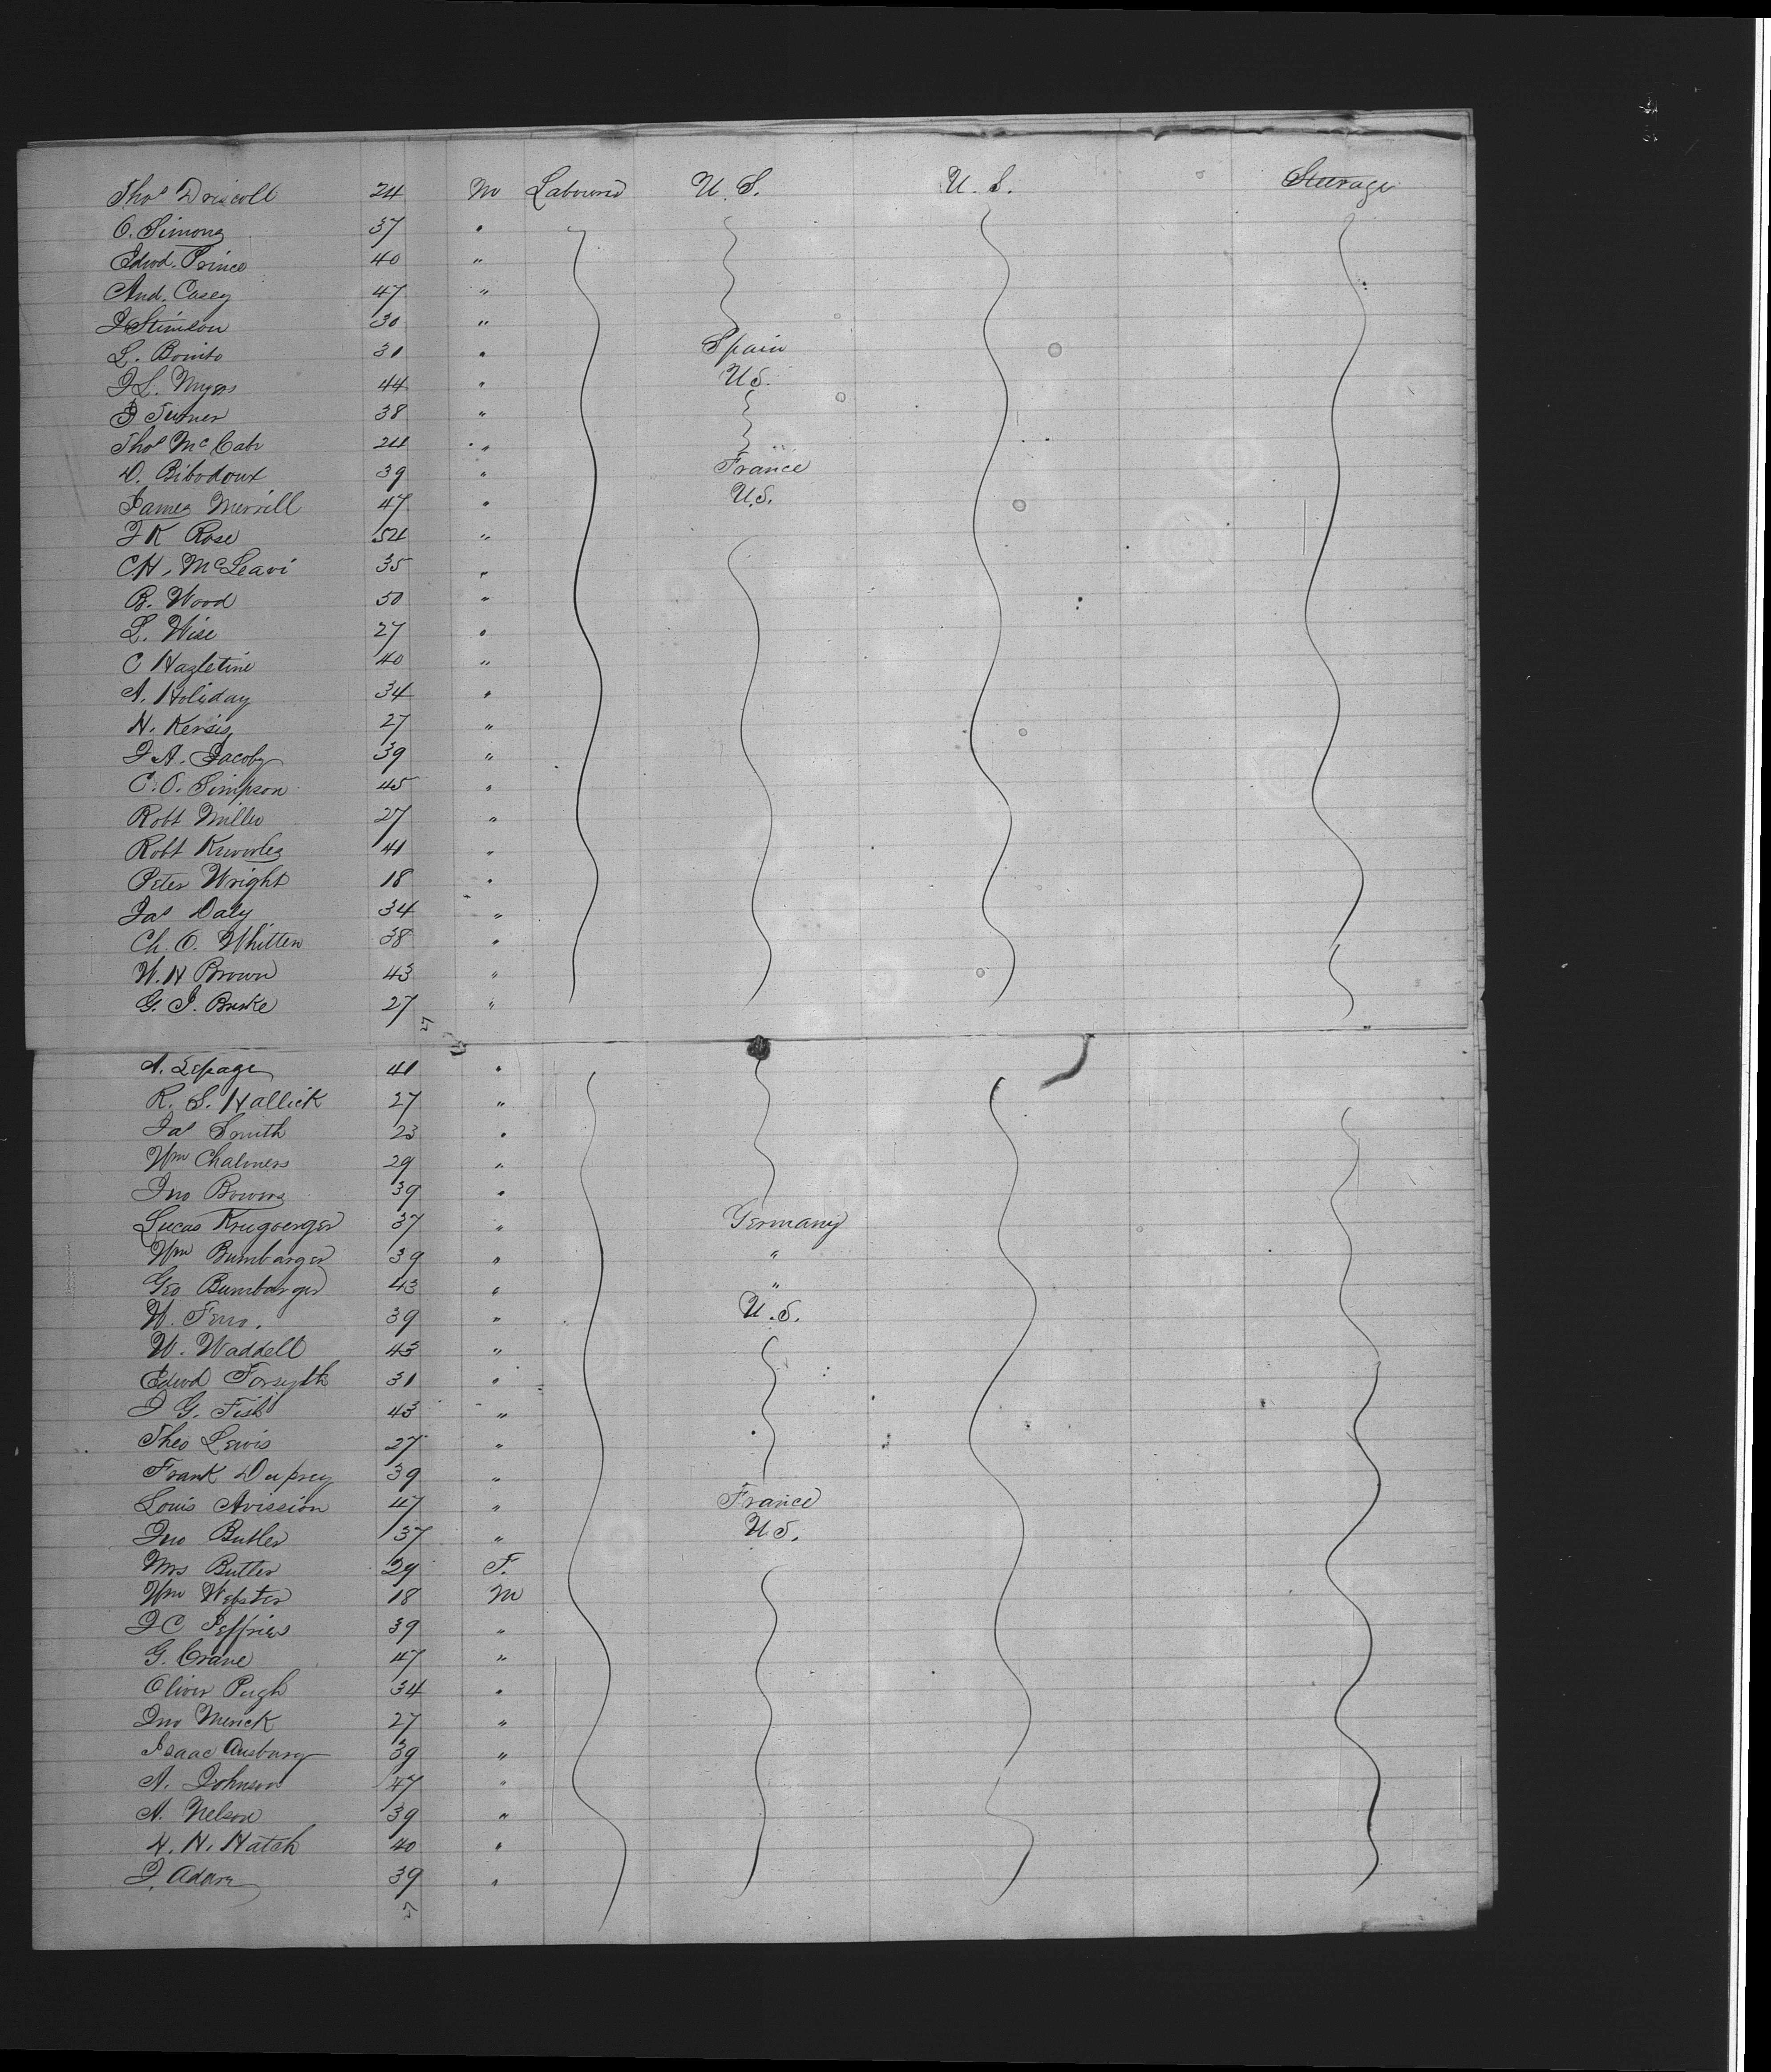 Thos Driscoll 24 M Labourer U.S. U.S. Steerage
O. Simons 37 "
Edwd. Prince 40 "
And. Casey 47 "
J Stimson 30 "
L. Bonito 31 " Spain
J L. Myers 44 " U.S.
J Turner 38 "
Thos McCabe 24 "
D. Bibodoux 39 " France
James Merrill 47 " U.S.
J K Rose 54 "
CH. McLeavi 35 "
B. Wood 50 "
L. Wise 27 "
C Hazletine 40 "
A. Holiday 34 "
N. 27 "
J A. Jacoby 39 "
C. O. Simpson 45 "
Robt Miller 27 "
Robt Knowles 41 "
Peter Wright 18 "
Jas Daly 34 "
Ch. O. Whitten 38 "
W. H Brown 43 "
G. J. Burke 27 "
A. Lepage 41 "
R. S. Hallick 27 "
Jas Smith 23 "
Wm Chalmers 29 "
Jno Bowers 39 "
Lucas 37 " Germany
Wm Bumbarger 39 " "
Geo Bumbarger 43 " "
W. Ferro. 39 " U.S.
W. Waddell 43 "
Edwd Forsyth 31 "
J G. Fish 43 "
Theo Lewis 27 "
Frank Duprey 39 "
Louis Avission 47 " France
Jno Butler 37 " U.S.
Mrs Butler 29 F.
Wm Webster 18 M
J C Jeffries 39 "
G. Crane 47 "
Oliver Pugh 34 "
Jno Merick 27 "
Isaac Ausburg 39 "
A. Johnson 47 "
A. Nelson 39 "
H. N. Hatch 40 "
J. Adams 39 "